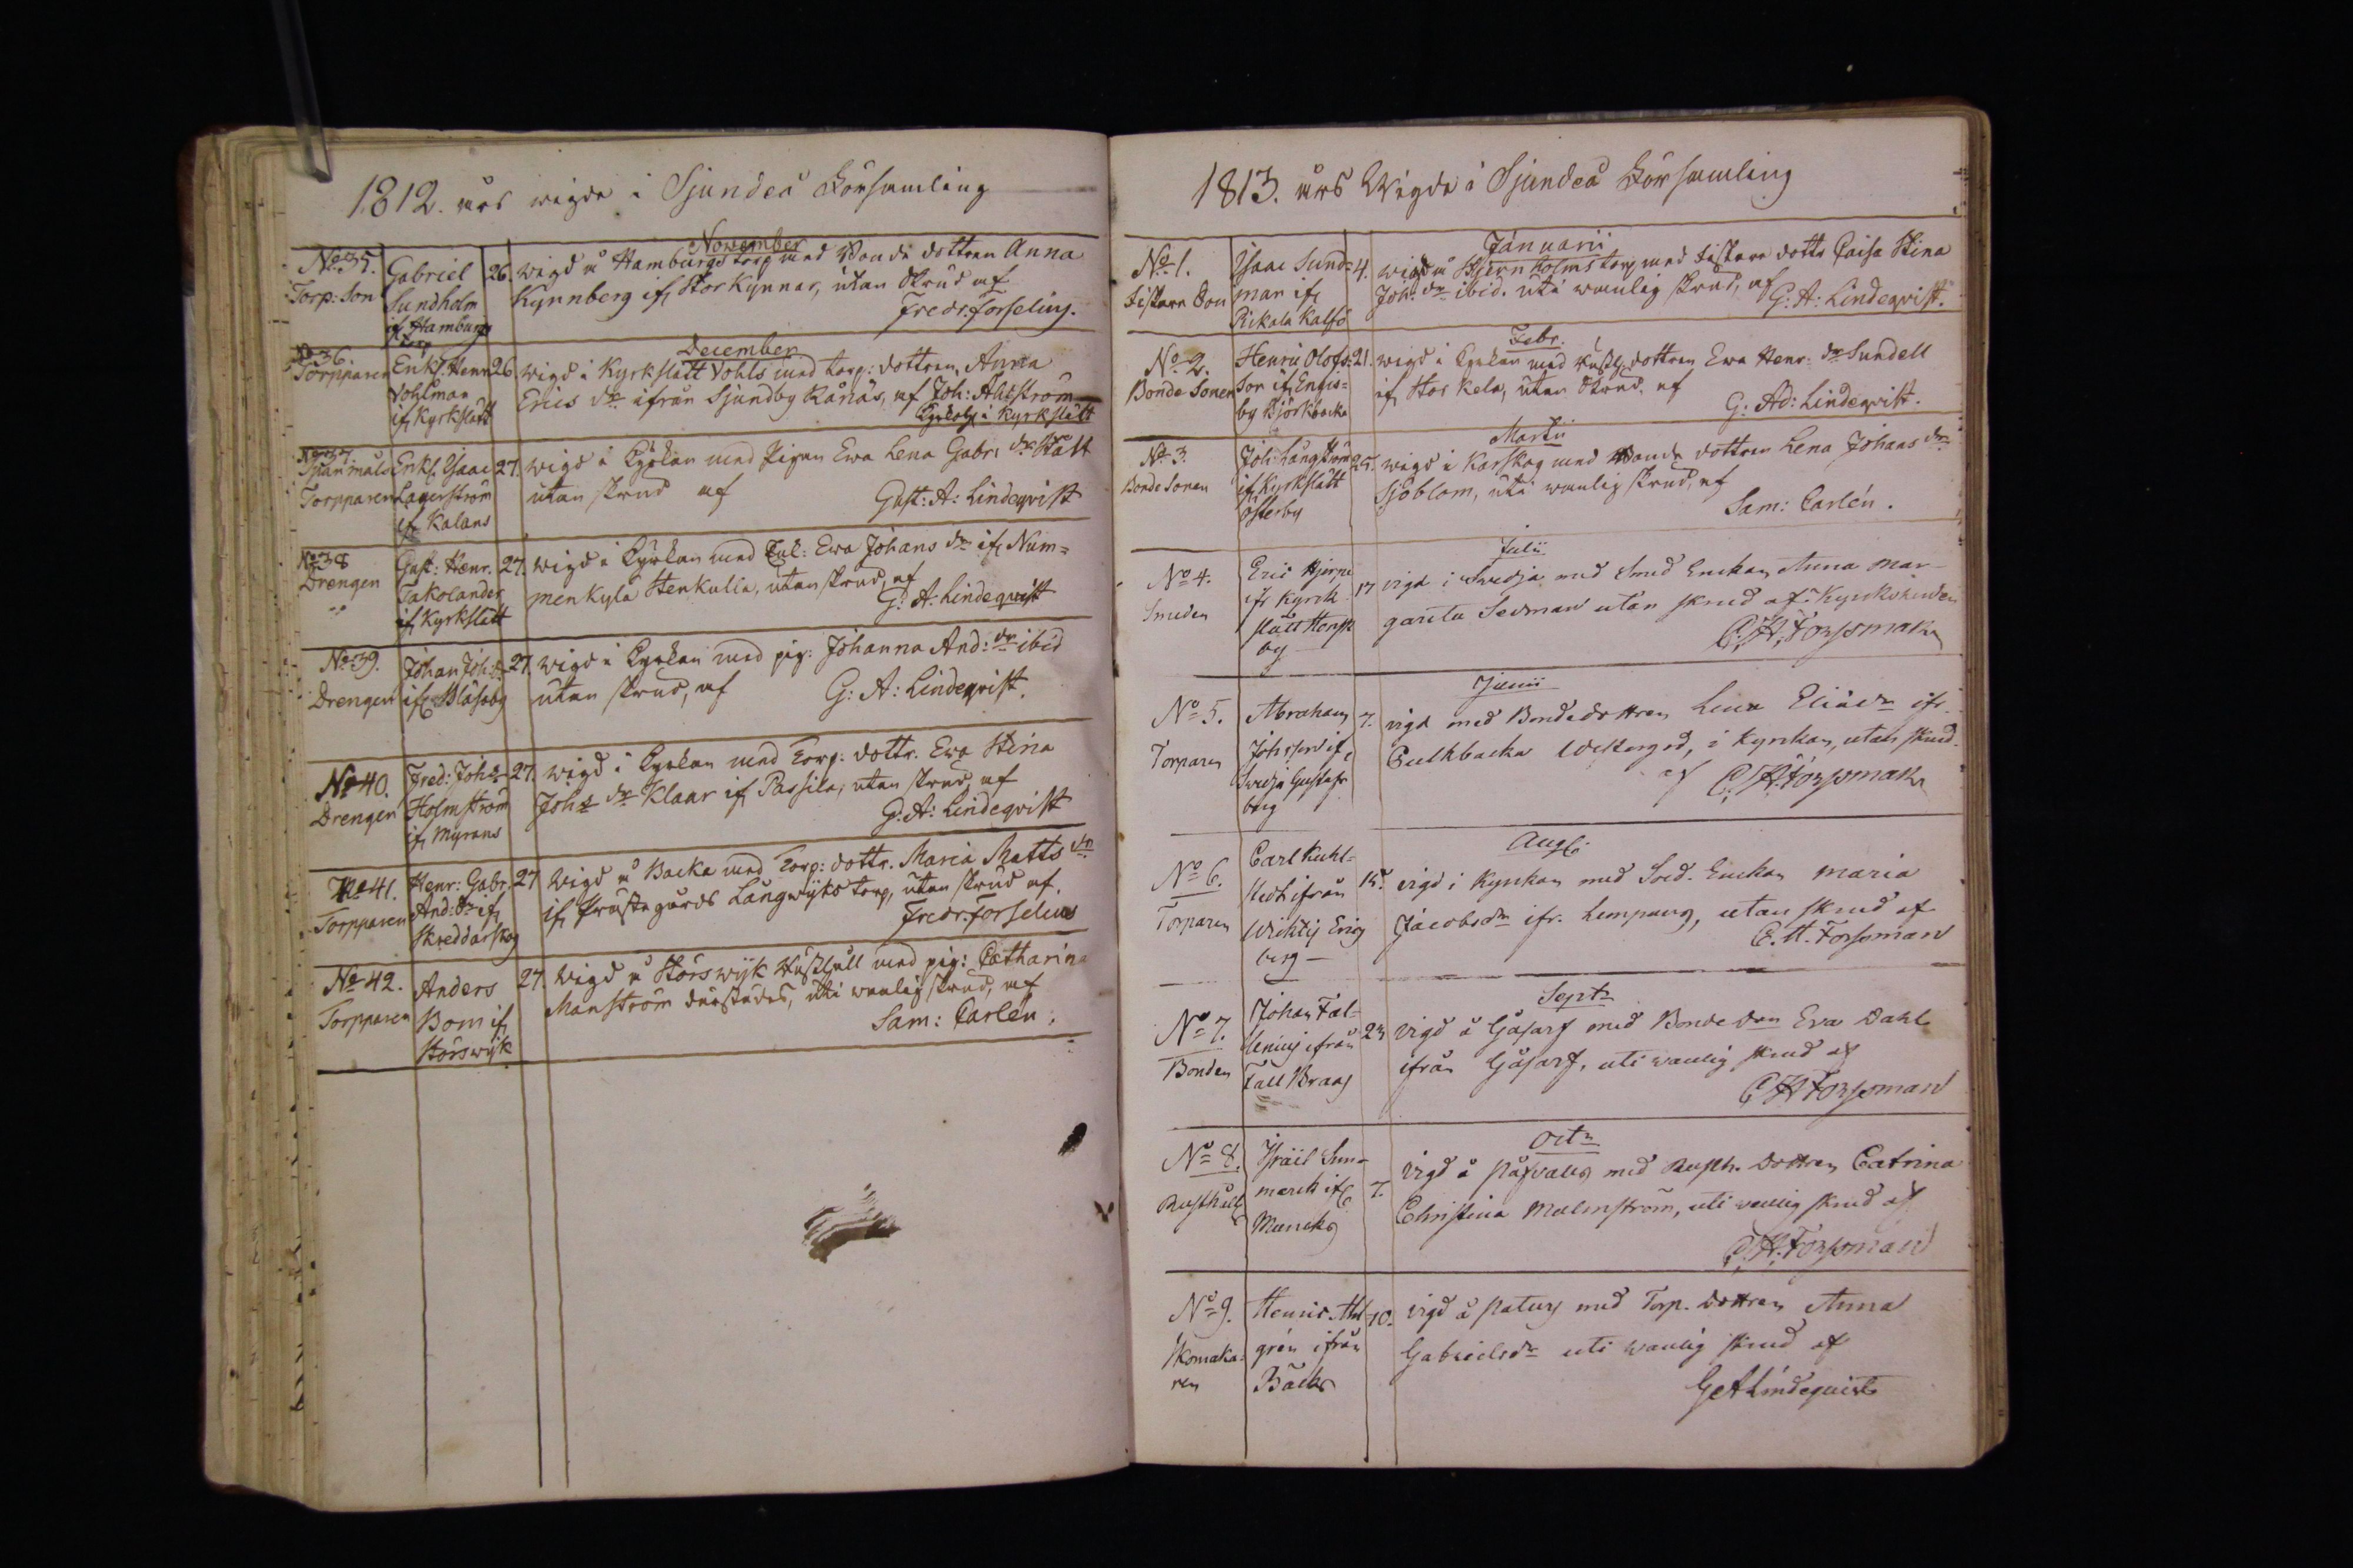 1812. års wigde i Sjundeå Församling
November
No 35. Torp: Son
Gabriel Sundholm if Hamburgs torp
26. wigd å Hamburgs torp med Bonde dottren Anna
Kynnberg if Stor Kynnar, utan Skrud af
Fredr. Forselius.
December
No 36. Torpparen
Enkl. Henr Vohlman if Kyrkslätt
26 wigd i Kyrkslätt Vohls med torp: dottren Anna
Erics dr ifrån Sjundby Kånäs, af Joh: Ahlström
i Kyrkslätt
No 37. Torpparen
Enkl. Isaac Lagerström if Kalans
27. wigd i Kyrkan med Pigan Ewa Lena Gabr: dr Stått
utan skrud af
Gust: A: Lindeqvist
No 38 Drengen
Gust: Henr. Takolander if Kyrkslätt
27. wigd i Kyrkan med Enk: Ewa Johans dr if Num=
menkylä Stenkulla, utan skrud, af
G: A: Lindeqvist
No 39. Drengen
Johan Joh:s if Blåsaby
27. wigd i Kyrkan med pig: Johanna And: dr ibid
utan skrud, af
G: A: Lindeqvist.
No 40. Drengen
Fred: Joh:s Holmström if Myrans
27. wigd i Kyrkan med Torp: dottr. Ewa Stina
Joh:s dr Klaar if Passila, utan skrud, af
G: A: Lindeqvist
No 41. Torpparen
Henr: Gabr. And: Sn if Skreddarskog
27 wigd å Backa med Torp: dottr. Maria Matts dr
if Prästegårds Långwiks torp, utan skrud af.
Fredr. Forselius
No 42. Torpparen
Anders Bom if Störswik
27. wigd å Störswijk Rusthåll med pig: Catharina
Manström därstädes, uti wanlig skrud, af
Sam: Carlén.
1813. års Wigde i Sjundeå Församling
Januarii
No 1. Fiskare Son
Isaac Sund=
man if
Pikala Kalfö
4. wigd å Stjernholms torp med fiskare dottr Caisa Stina
Joh: dr ibid. uti wanlig skrud, af G: A: Lindeqvist.
Febr.
No 2. Bonde Sonen
Henric Olofs=
son if Engis=
by Björkbacka
21. wigd i Kyrkan med Rusth. dottren Ewa Henr: dr Sundell
if Stor Kela, utan Skrud, af
G: Ad: Lindeqvist.
Martii
No 3. Bonde Sonen
Joh: Långström
if Kyrkslätt
Österby
25. wigd i Karskog med Bonde dottren Lena Johans dr
Sjöblom, uti wanlig skrud, af
Sam: Carlén.
Julii
No 4. Smeden
Eric Hjerpe
ifr Kyrck
slätt
by
17 vigd i Svidja med Smed Enckan Anna Mar-
gareta Sedman utan skrud af Kyrckoherden
C. H. Forssman
Junii
No 5. Torparen
Abraham
Johsson if.
Svidja Gustafs
berg
7. vigd med Bondedottren Lena Eliædr ifr.
Pulkbacka Westergrd, i Kyrckan, utan skrud.
af C. H. Forssman
Aug.
No 6. Torparen
Carl Kuhl=
stedt ifrån
Wikby Erig
berg
15. vigd i Kyrckan med Sold. Enckan Maria
Jacobsdr ifr. Lempans, utan skrud af
C. H. Forssman
Septr
No 7. Bonden
Johan Fäl=
lenius ifrån
Fäll Braas
24 vigd å Gåsarf med Bonde dren Eva Dahl
ifrån Gåsarf, uti wanlig skrud af
C H Forssman
Octr
No 8. Rusthåll
Israel Sun=
marck if
Muncks
7. vigd å Påfvals med Rusth. dottren Catrina
Christina Malmström, uti wanlig skrud af
C. H. Forssman
No 9. Skomaka:
ren
Henric Ahl
grén ifrån
Bäcks
10. vigd å Paturs med Torp. dottren Anna
Gabrielsdr uti wanlig skrud af
G A Lindequist